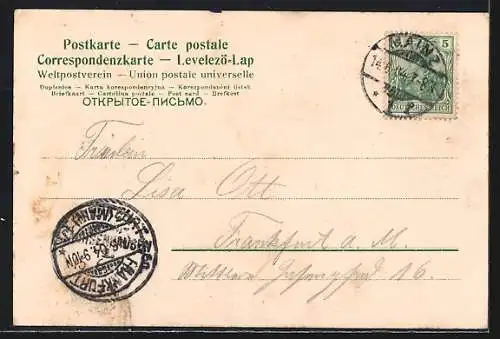 Postkarte — Carte postale
Correspondenzkarte — Levelező-Lap
Weltpostverein — Union postale universelle
Dopisnice — Karta korespondencyjna — Korespondenčni listek
Briefkaart — Cartolina postale — Post card — Brefkort
ОТКРЫТОЕ-ПИСЬМО.
5
MAINZ
Fräulein
Lisa Ott
Frankfurt a. M.
16.
FRANKFURT